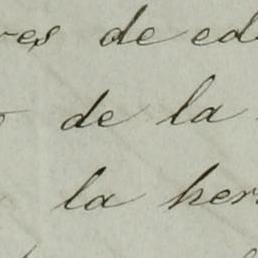 res de eda
de la
la her